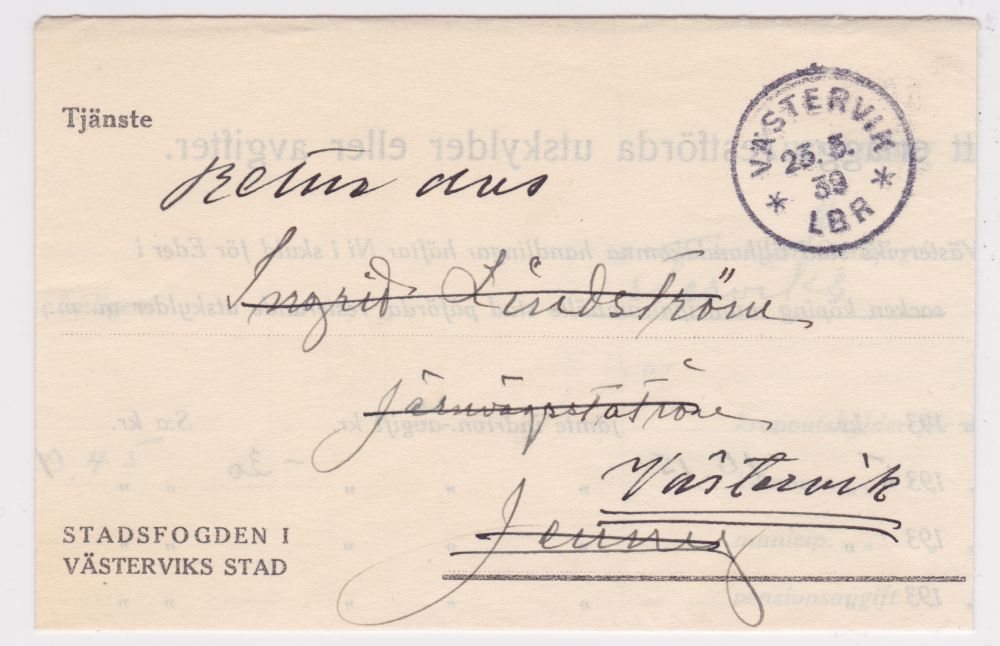 Tjänste
VÄSTERVIK
23. 3.
39
LBR
Retur avs
Ingrid Lindström
Järnvägsstation
Västervik
Jenny
STADSFOGDEN I
VÄSTERVIKS STAD